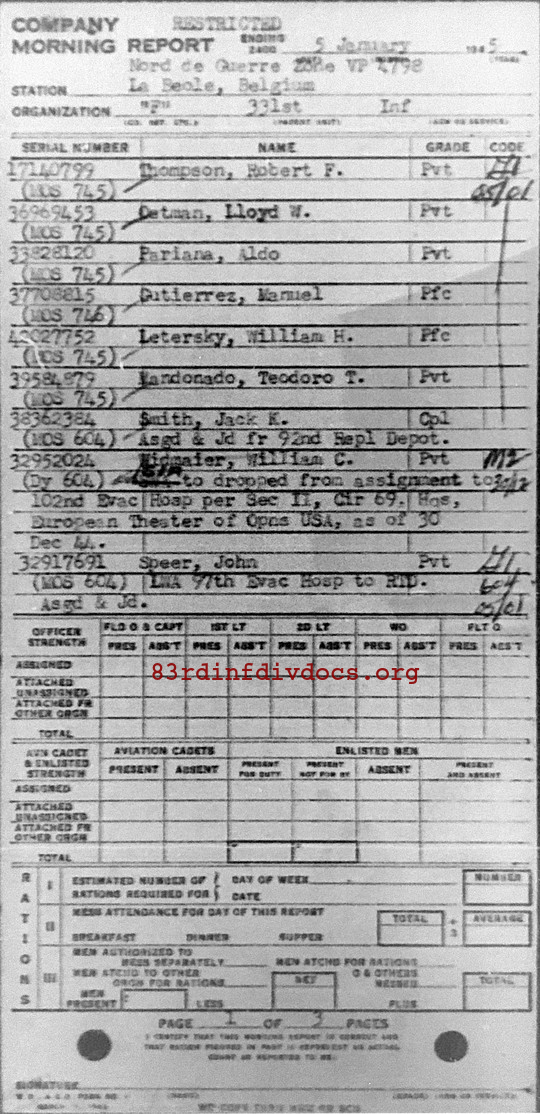 COMPANY RESTRICTED
MORNING REPORT ENDING 2400 5 January 1945
Nord de Guerre Zone VP 4798
STATION La Beole, Belgium
ORGANIZATION "F" 331st Inf
SERIAL NUMBER NAME GRADE CODE
17140799 Thompson, Robert F. Pvt
(MOS 745) 05/01
36969453 Oetman, Lloyd W. Pvt
(MOS 745)
33828120 Pariana, Aldo Pvt
(MOS 745)
37708815 Gutierrez, Manuel Pfc
(MOS 746)
42027752 Letersky, William H. Pfc
(MOS 745)
39584879 Mandonado, Teodoro T. Pvt
(MOS 745)
38362384 Smith, Jack K. Cpl
(MOS 604) Asgd & Jd fr 92nd Repl Depot.
32952024 Widmaier, William C. Pvt
(Dy 604) to dropped from assignment to
102nd Evac Hosp per Sec II, Cir 69. Hqs,
European Theater of Opns USA, as of 30
Dec 44.
32917691 Speer, John Pvt
(MOS 604) LWA 97th Evac Hosp to RTD. 604
Asgd & Jd. 05/01
OFFICER STRENGTH FLD O & CAPT 1ST LT 2D LT WO FLT O
PRES ABS'T PRES ABS'T PRES ABS'T PRES ABS'T PRES ABS'T
ASSIGNED
ATTACHED UNASSIGNED
ATTACHED FR OTHER ORGN
TOTAL
83rdinfdivdocs.org
AVN CADET & ENLISTED STRENGTH AVIATION CADETS ENLISTED MEN
PRESENT ABSENT PRESENT FOR DUTY PRESENT NOT FOR DY ABSENT PRESENT AND ABSENT
ASSIGNED
ATTACHED UNASSIGNED
ATTACHED FR OTHER ORGN
TOTAL
RATIONS
I ESTIMATED NUMBER OF RATIONS REQUIRED FOR { DAY OF WEEK DATE NUMBER
II MESS ATTENDANCE FOR DAY OF THIS REPORT TOTAL ÷ 3 AVERAGE
BREAKFAST DINNER SUPPER
III MEN AUTHORIZED TO MESS SEPARATELY MEN ATCHD FOR RATIONS
MEN ATCHD TO OTHER ORGN FOR RATIONS NET O & OTHERS MESSED TOTAL
MEN PRESENT LESS PLUS
PAGE 1 OF 3 PAGES
I CERTIFY THAT THIS MORNING REPORT IS CORRECT AND
SIGNATURE